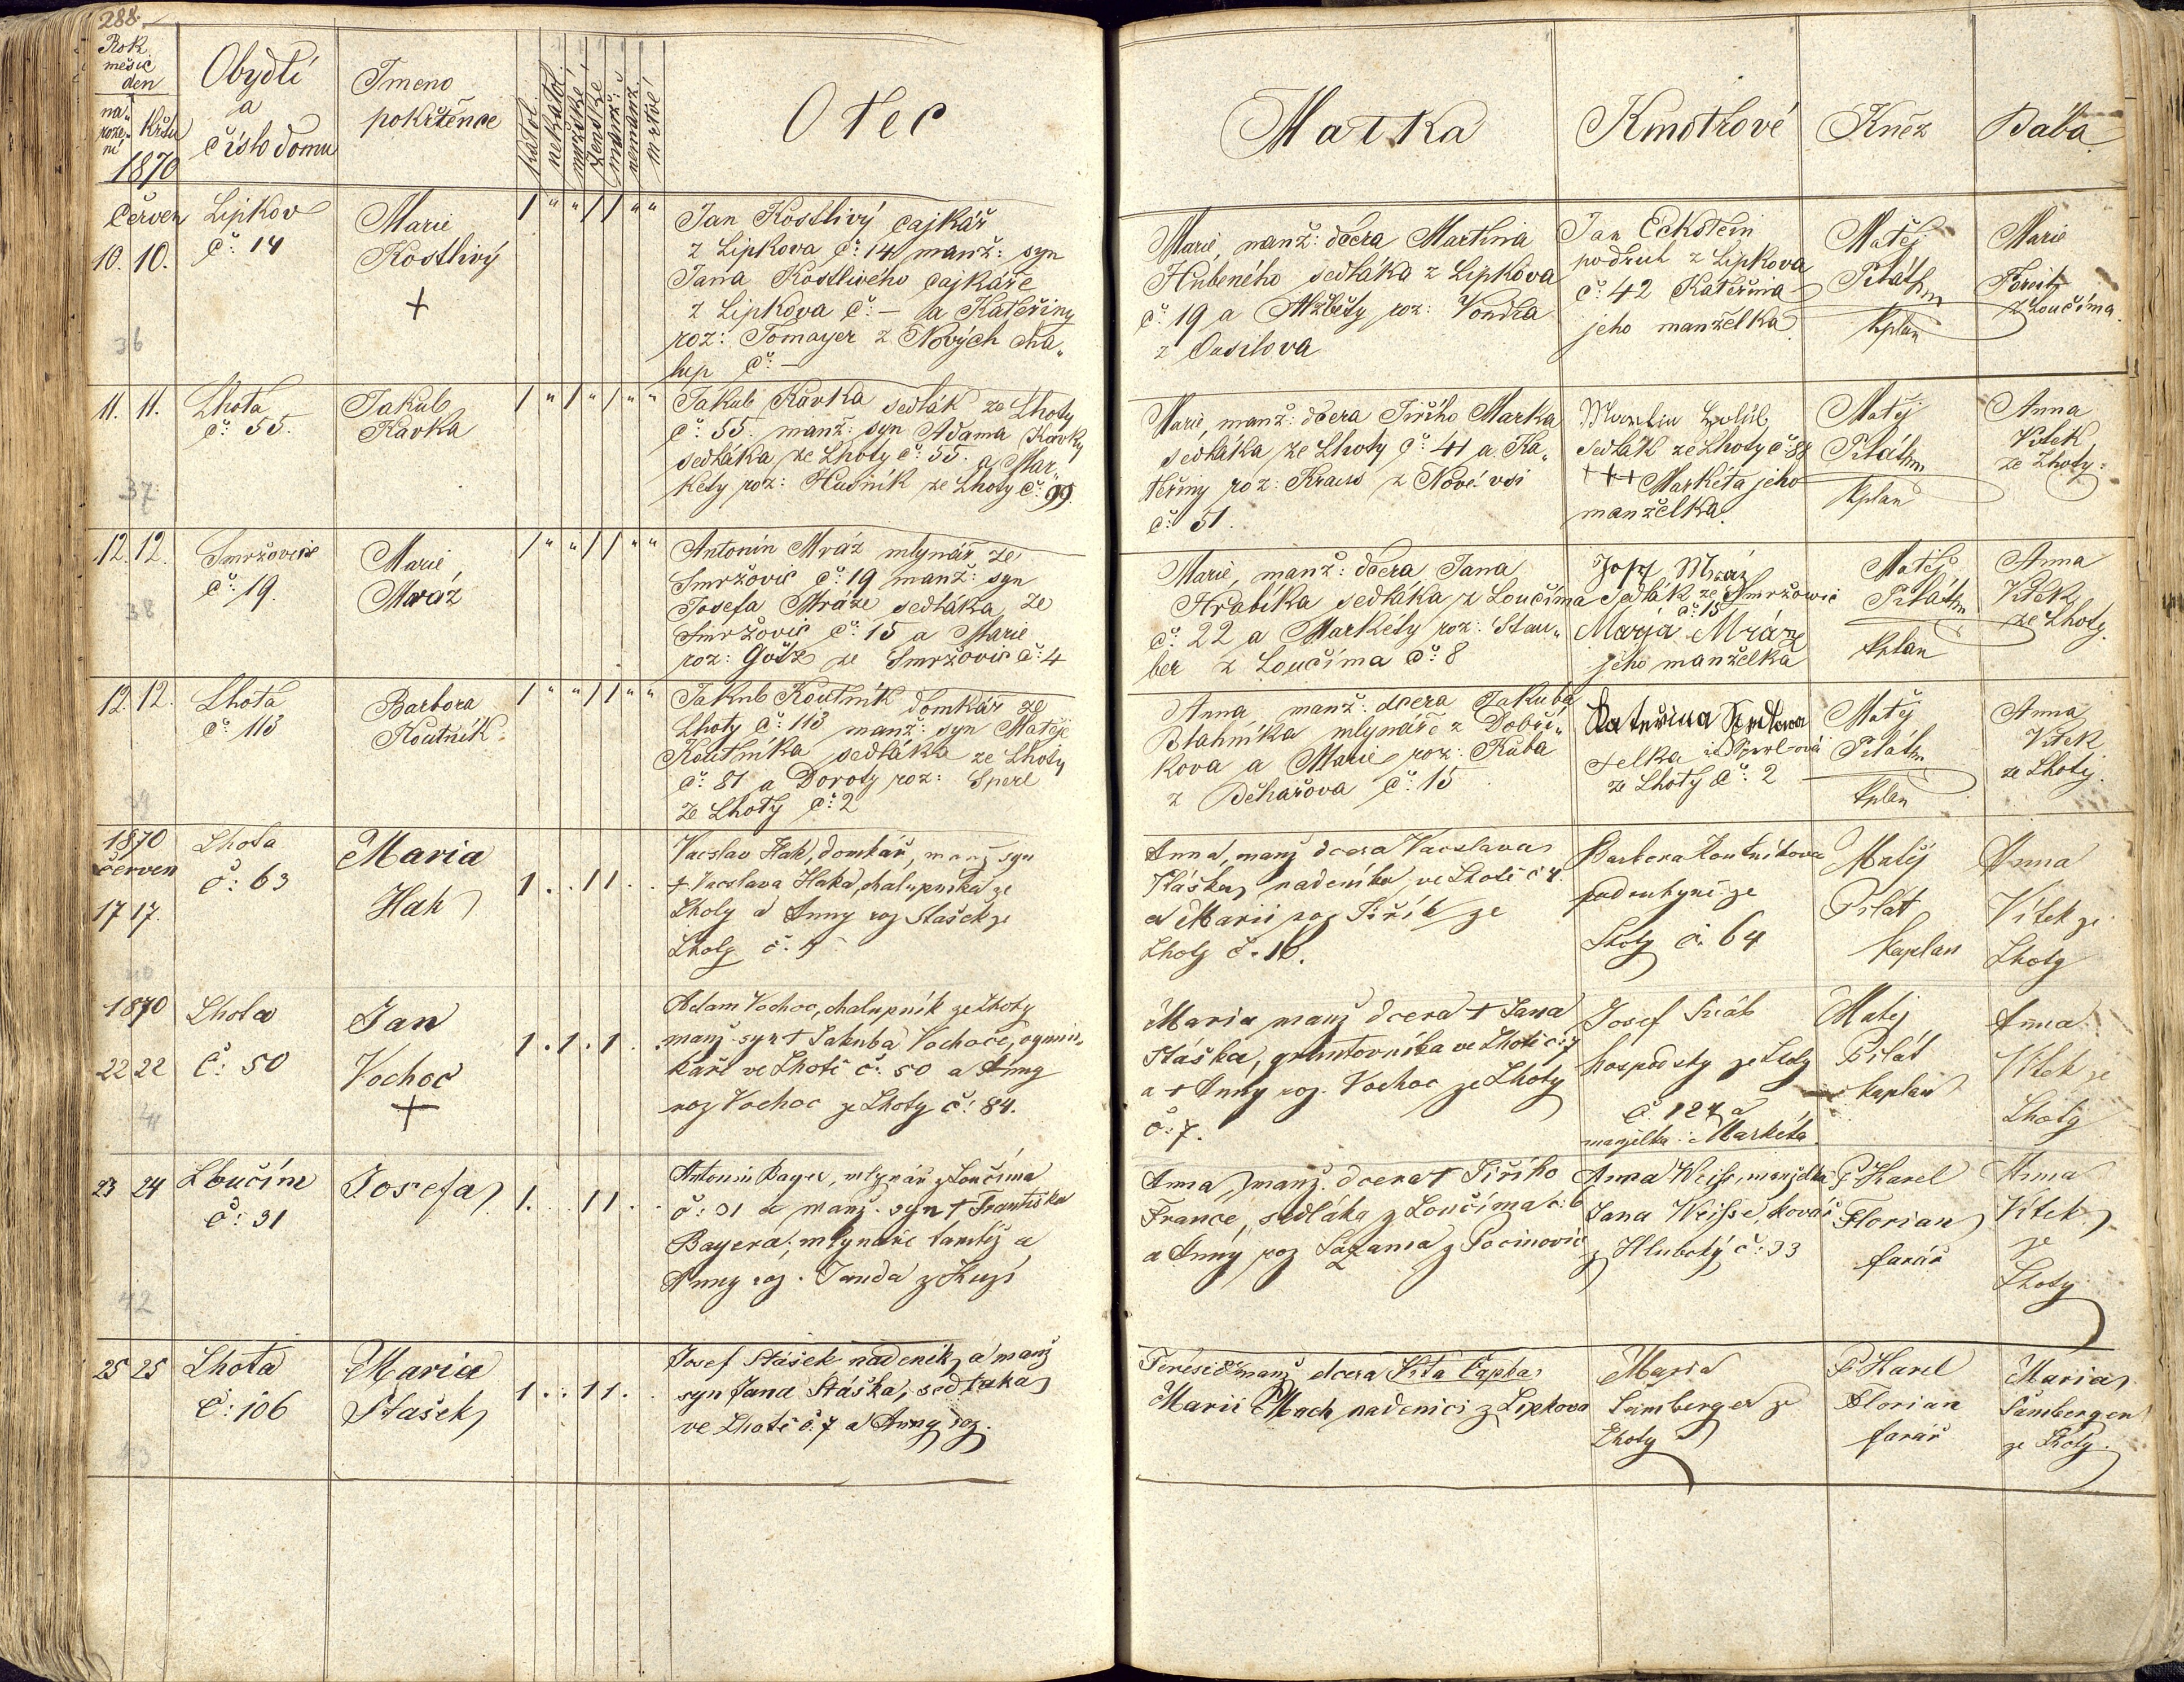 288.
Rok
měsíc
den
na„
roze„
ní
Křtu
1870
Obydlí
a
číslo domu
Jmeno
pokřtěnce
katol.
nekatol.
mužské
ženské
manž:
nemanž.
mrtvé
Otec
Matka
Kmotrové
Kněz
Bába
Červen
10. 10.
36
Lipkov
č: 14
Marie
Kostlivý
+
1 " " 1 1 " "
Jan Kostlivý cajkář
z Lipkova č: 14 manž: syn
Jana Kostlivého cajkáře
z Lipkova č: – a Kateřiny
roz: Tomayer z Nových cha„
lup č: –
Marie, manž: dcera Martina
Hubeného sedláka z Lipkova
č: 19 a Alžběty roz: Vondra
z
Jan Eckstein
podruh z Lipkova
č: 42 Kateřina
jeho manželka
Matěj
Pilát
kplan
Marie
z Loučíma.
11. 11.
37
Lhota
č: 55.
Jakub
Kavka
1 " 1 " 1 " "
Jakub Kavka sedlák ze Lhoty
č: 55. manž: syn Adama Kavky
sedláka ze Lhoty č: 55. a Mar„
kety roz: Hudník ze Lhoty č: 99.
Marie, manž: dcera Jiřího Marka
sedláka ze Lhoty č: 41 a Ka„
teřiny roz: Kraus z Nové vsi
č: 51.
sedlák ze Lhoty č: 88
+++ Markéta jeho
manželka.
Matěj
Pilát
kplan
Anna
Vítek
ze Lhoty.
12. 12.
38
Smržovic
č: 19.
Marie
Mráz
1 " " 1 1 " "
Antonín Mráz mlynář ze
Smržovic č: 19 manž: syn
Josefa Mráze sedláka ze
Smržovic č: 15 a Marie
roz: Götz ze Smržovic č: 4
Marie, manž: dcera Jana
Hrabíka sedláka z Loučíma
č: 22 a Markéty roz: Stau„
ber z Loučíma č: 8
Josef Mráz
sedlák ze Smržowic
č: 15
Marja Mráz
jeho manželka
Matěj
Pilát
kplan
Anna
Vítek
ze Lhoty.
12. 12.
39
Lhota
č: 113
Barbora
Koutník
1 " " 1 1 " "
Jakub Koutník domkář ze
Lhoty č: 113 manž: syn Matěje
Koutníka sedláka ze Lhoty
č: 81 a Doroty roz: Sperl
ze Lhoty č: 2
Anna, manž: dcera Jakuba
Blahníka mlynáře z Dobří„
kova a Marie roz: Kuba
z č: 15
Kateřina
selka
ze Lhoty č: 2
Matěj
Pilát
kplan
Anna
Vítek
ze Lhoty.
1870
červen
17 17.
40
Lhota
č: 63
Maria
Hak
1 . . 1 1 . .
Vacslav Hak, domkář, manž syn
+ Vacslava Haka, chalupníka ze
Lhoty a Anny roz Stašek ze
Lhoty č.
Anna, manž dcera Vacslava
Stáška, nadeníka, ve Lhotě č
a Marii roz Jiřík ze
Lhoty č. 16.
Barbora Koutníkova
podruhyně ze
Lhoty č. 64
Matěj
Pilát
kaplan
Anna
Vítek ze
Lhoty
1870
22 22
41
Lhota
č: 50
Jan
Vochoc
+
1 . 1 . 1 . .
Adam Vochoc, chalupník ze Lhoty
manž. syn + Jakuba Vochoce,
ve Lhotě č: 50 a Anny
roz Vochoc ze Lhoty č: 84.
Maria manž dcera + Jana
Stáška, gruntovníka ve Lhotě č: 7
a + Anny roz. Vochoc ze Lhoty
č: 7.
Josef
hospodský ze Lhoty
č. 127 a
manželka: Markéta
Matěj
Pilát
kaplan
Anna
Vítek ze
Lhoty
23 24
42
Loučím
č: 31
Josefa
1. . . 1 1 . .
Antonín Bayer, mlynář z Loučíma
č: 31 a manž. syn + Františka
Bayera, mlynáře tamtéž a
Anny roz. Janda z
Anna, manž. dcera + Jiřího
France, sedláka z Loučíma č: 6
a Anny roz z Pocinovic
Anna Weiss, manželka
Jana Weisse, kováře
z Hluboký č: 33
P. Karel
Florian
farář
Anna
Vítek
ze
Lhoty
25 25
43
Lhota
č: 106
Maria
Stašek
1 . . 1 1 . .
Josef Stášek nadeník, a manž
syn Jana Stáška, sedláka
ve Lhotě č. 7 a Anny roz.
Teresie manž dcera Víta Čapka
Marii Mach nadenici z Lipkova
Maria
Lamberger ze
Lhoty
P. Karel
Florian
farář
Maria
Lamberger
ze Lhoty.